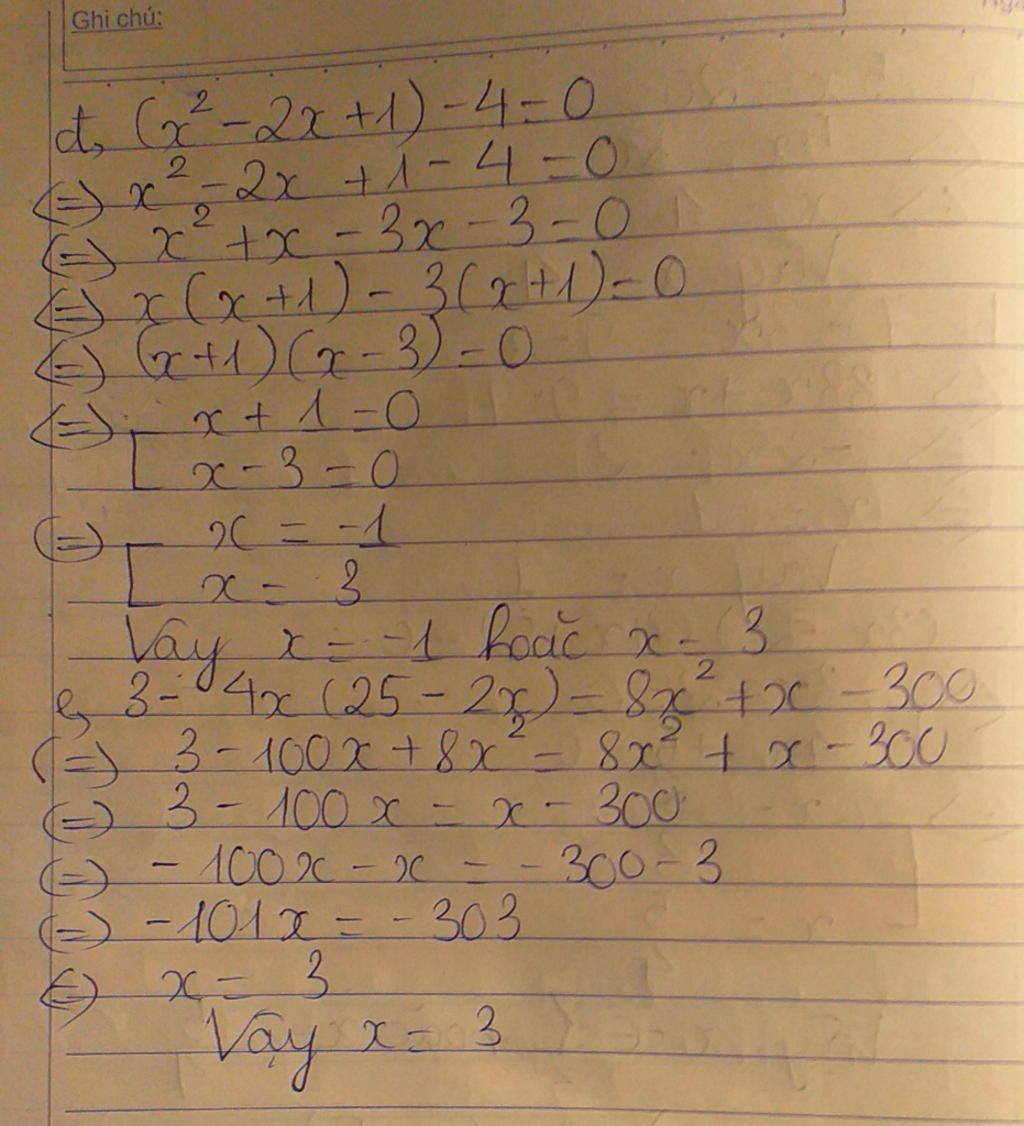 Ghi chú:
d, (x² - 2x + 1) - 4 = 0
(=) x² - 2x + 1 - 4 = 0
(=) x² + x - 3x - 3 = 0
(=) x(x + 1) - 3(x + 1) = 0
(=) (x + 1)(x - 3) = 0
(=) [ x + 1 = 0
x - 3 = 0
(=) [ x = -1
x = 3
Vậy x = -1 hoặc x = 3
e, 3 - 4x(25 - 2x) = 8x² + x - 300
(=) 3 - 100x + 8x² = 8x² + x - 300
(=) 3 - 100x = x - 300
(=) -100x - x = -300 - 3
(=) -101x = -303
(=) x = 3
Vậy x = 3